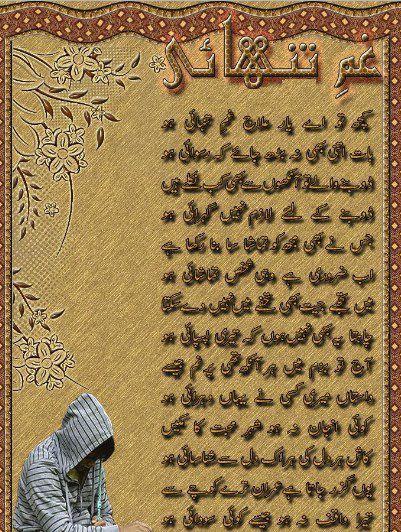 غمِ تنہائی
کچھ تو اے یار علاج غم تنہائی ہو
بات اتنی بھی نہ بڑھ جائے کہ رسوائی ہو
ڈوبنے والے تو آنکھوں سے بھی کب نکلے ہیں
ڈوبنے کے لئے لازم نہیں گہرائی ہو
جس نے بھی مجھ کو تماشا سا بنا رکھا ہے
اب ضروری ہے وہی شخص تماشائی ہو
میں تجھے جیت بھی تحفے میں نہیں دے سکتا
چاہتا یہ بھی نہیں ہوں کہ تیری پسپائی ہو
آج تو بزم میں ہر آنکھ تھی پرنم جیسے
داستاں میری کسی نے یہاں دہرائی ہو
کوئی انجان نہ ہو شہر محبت کا مکیں
کاش ہر دل کی ہر اک دل سے شناسائی ہو
یوں گزر جاتا ہے عمران ترے کوچے سے
تیرا واقف نہ ہو جیسے کوئی سودائی ہو